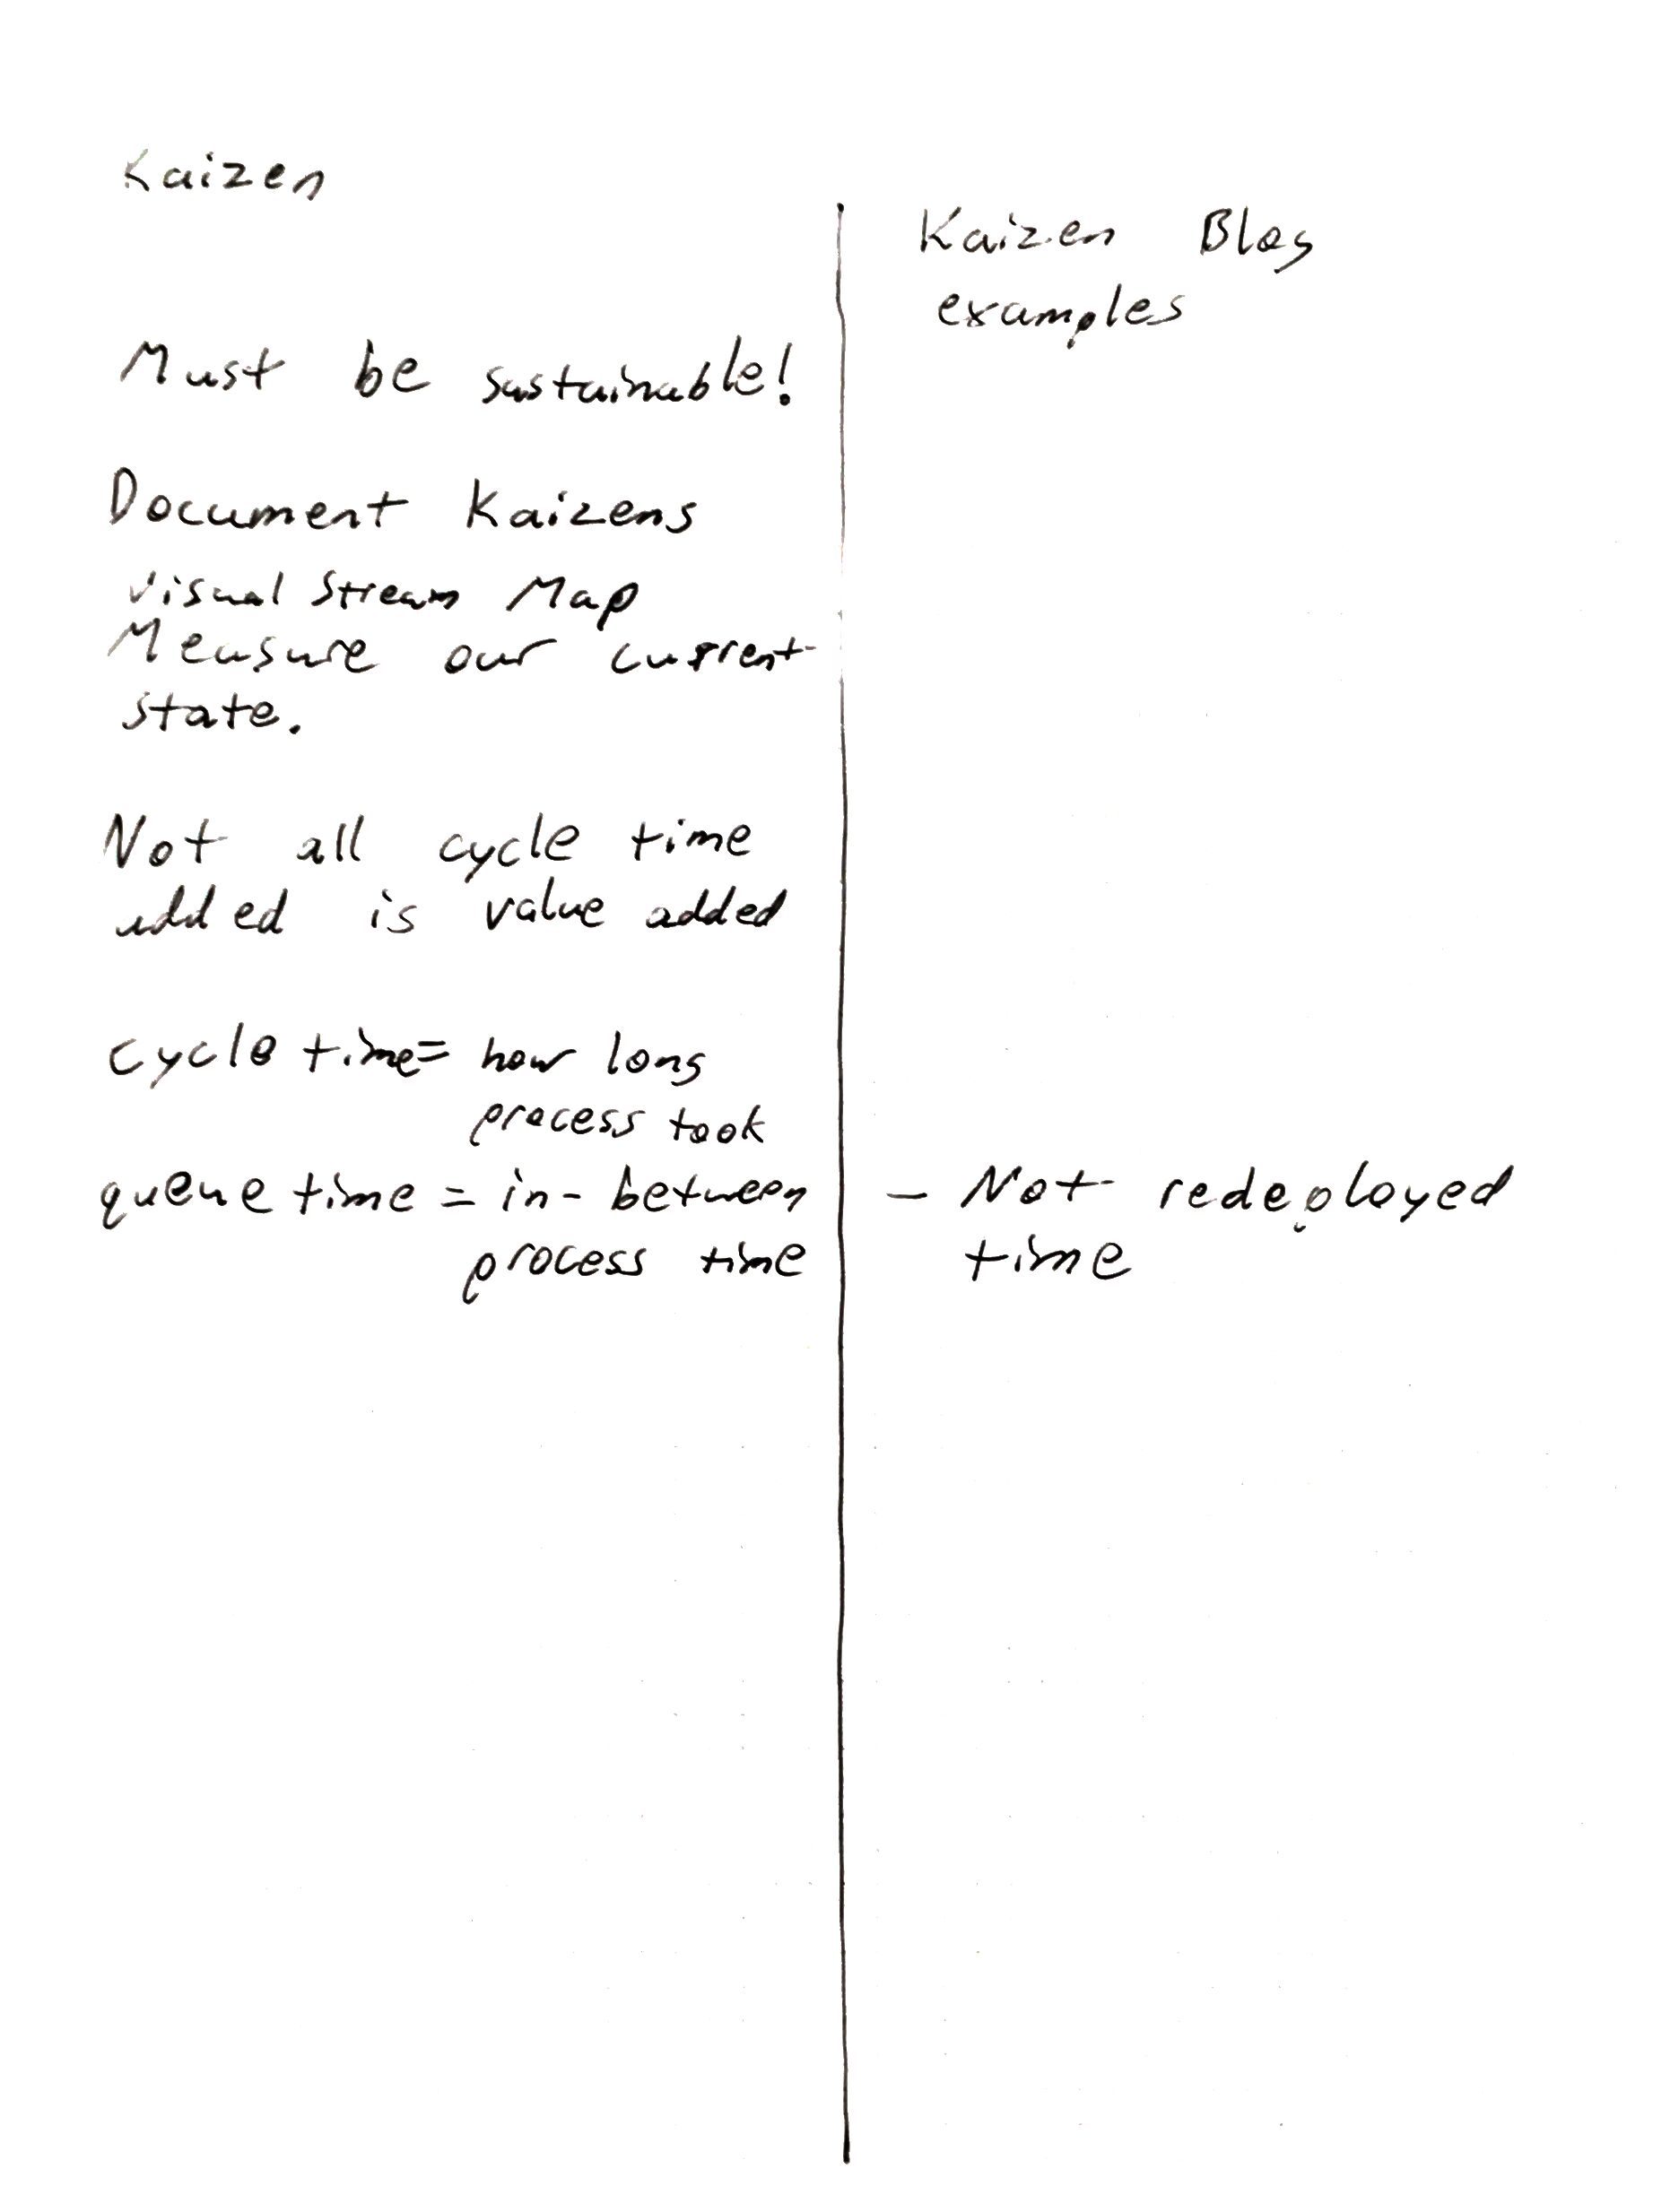 Kaizen
Must be sustainable!
Document Kaizens
Visual Stream Map
Measure our current
state.
Not all cycle time
added is value added
cycle time= how long
process took
queue time = in-between
process time
Kaizen Blog
examples
- Not redeployed
time